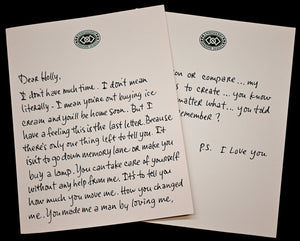 Dear Holly,
I don't have much time. I don't mean
literally. I mean you're out buying ice
cream and you'll be home soon. But I
have a feeling this is the last letter. Because
there's only one thing left to tell you. It
isn't to go down memory lane or make you
buy a lamp. You can take care of yourself
without any help from me. It's to tell you
how much you move me. How you changed
me. You made me a man by loving me,
ou or compare... my
s to create... you know
matter what... you told
emember?
P.S. I Love you.